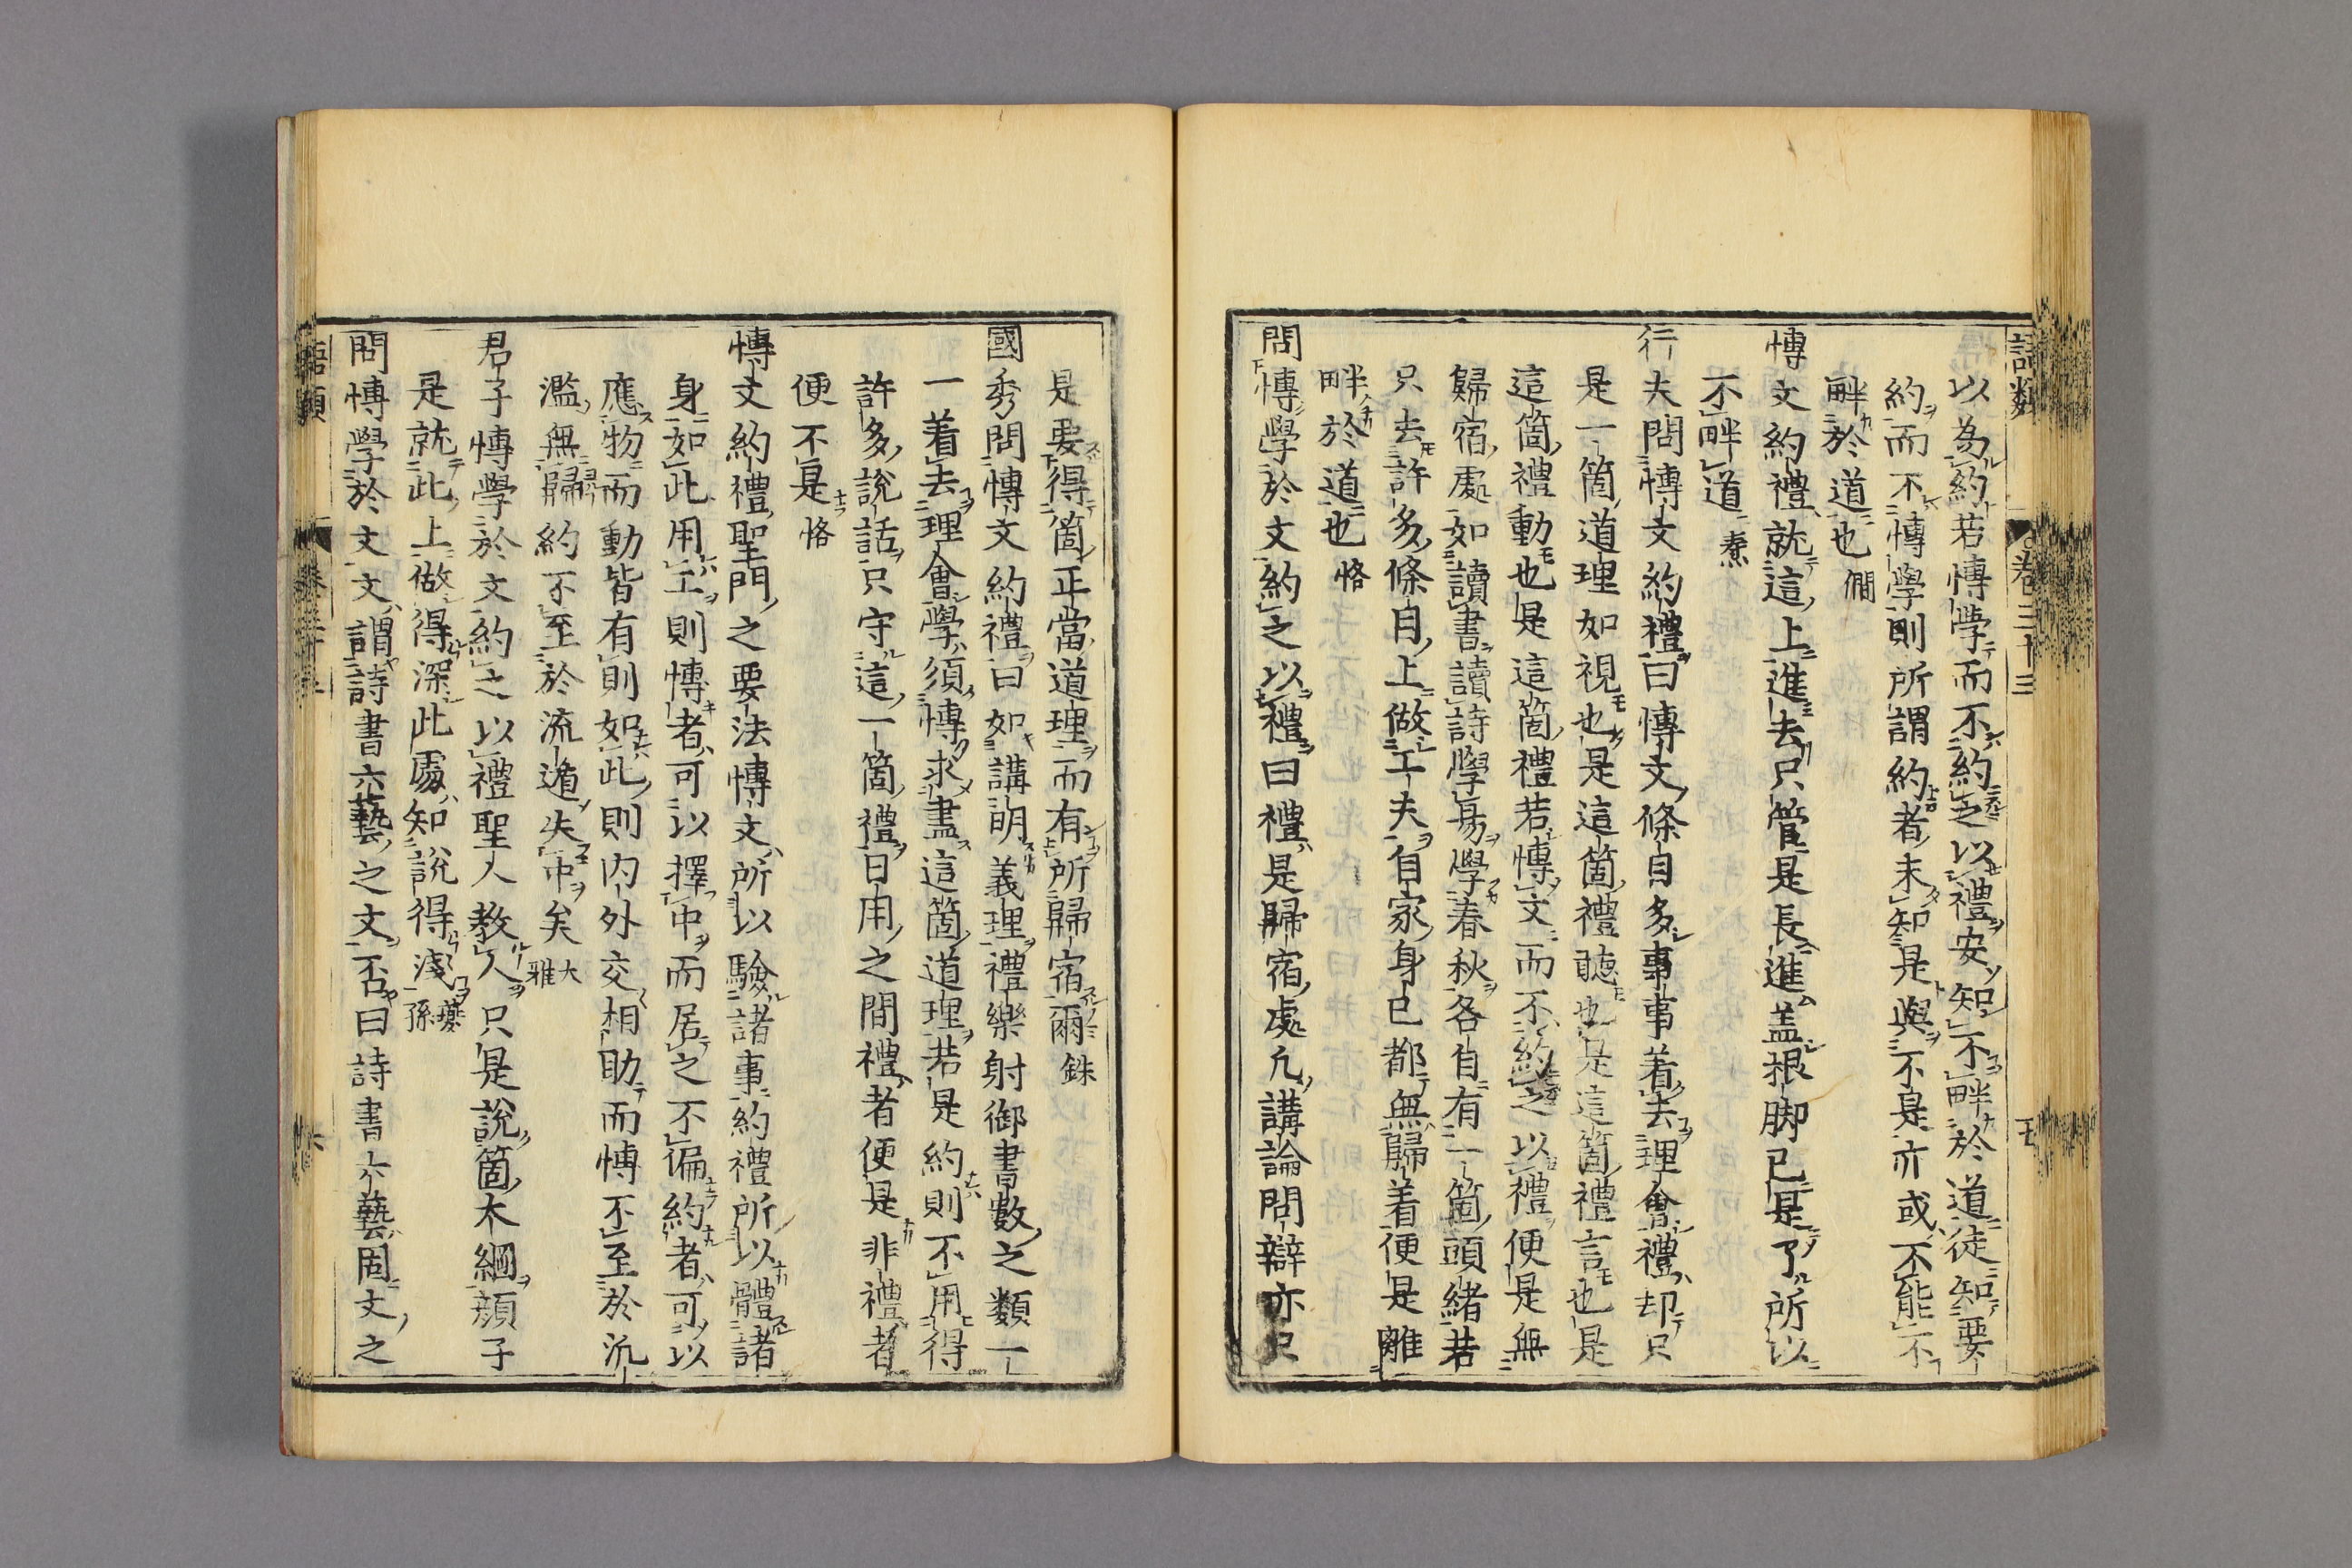 語類 卷三十三
以為約若博學而不約之以禮安知不畔於道徒知要
約而不博學則所謂約者未知是與不是亦或不能不
畔於道也 僩
博文約禮就這上進去只管是長進盖根脚已是了所以
不畔道 燾
行夫問博文約禮曰博文條目多事事着去理會禮却只
是一箇道理如視也是這箇禮聽也是這箇禮言也是
這箇禮動也是這箇禮若博文而不約之以禮便是無
歸宿處如讀書讀詩學易學春秋各自有一箇頭緒若
只去許多條目上做工夫自家身己都無歸着便是離
畔於道也 恪
問博學於文約之以禮曰禮是歸宿處凡講論問辯亦只
是要得箇正當道理而有所歸宿爾 銖
國秀問博文約禮曰如講明義理禮樂射御書數之類一
一着去理會學須博求盡這箇道理若是約則不用得
許多說話只守這一箇禮日用之間禮者便是非禮者
便不是 恪
博文約禮聖門之要法博文所以驗諸事約禮所以體諸
身如此用工則博者可以擇中而居之不偏約者可以
應物而動皆有則如此則内外交相助而博不至於汎
濫無歸約不至於流遁失中矣 大雅
君子博學於文約之以禮聖人教人只是說箇大綱顔子
是就此上做得深此處知說得淺 夔孫
問博學於文文謂詩書六藝之文否曰詩書六藝固文之
語類 卷三十三 六